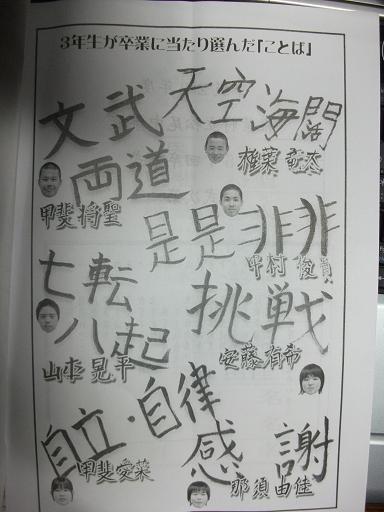 3年生が卒業に当たり選んだ「ことば」
天空海闊
椎葉竜太
文武両道
甲斐将聖
是是非非
中村俊貴
七転八起
山本晃平
挑戦
安藤有希
自立・自律
甲斐愛菜
感謝
那須由佳